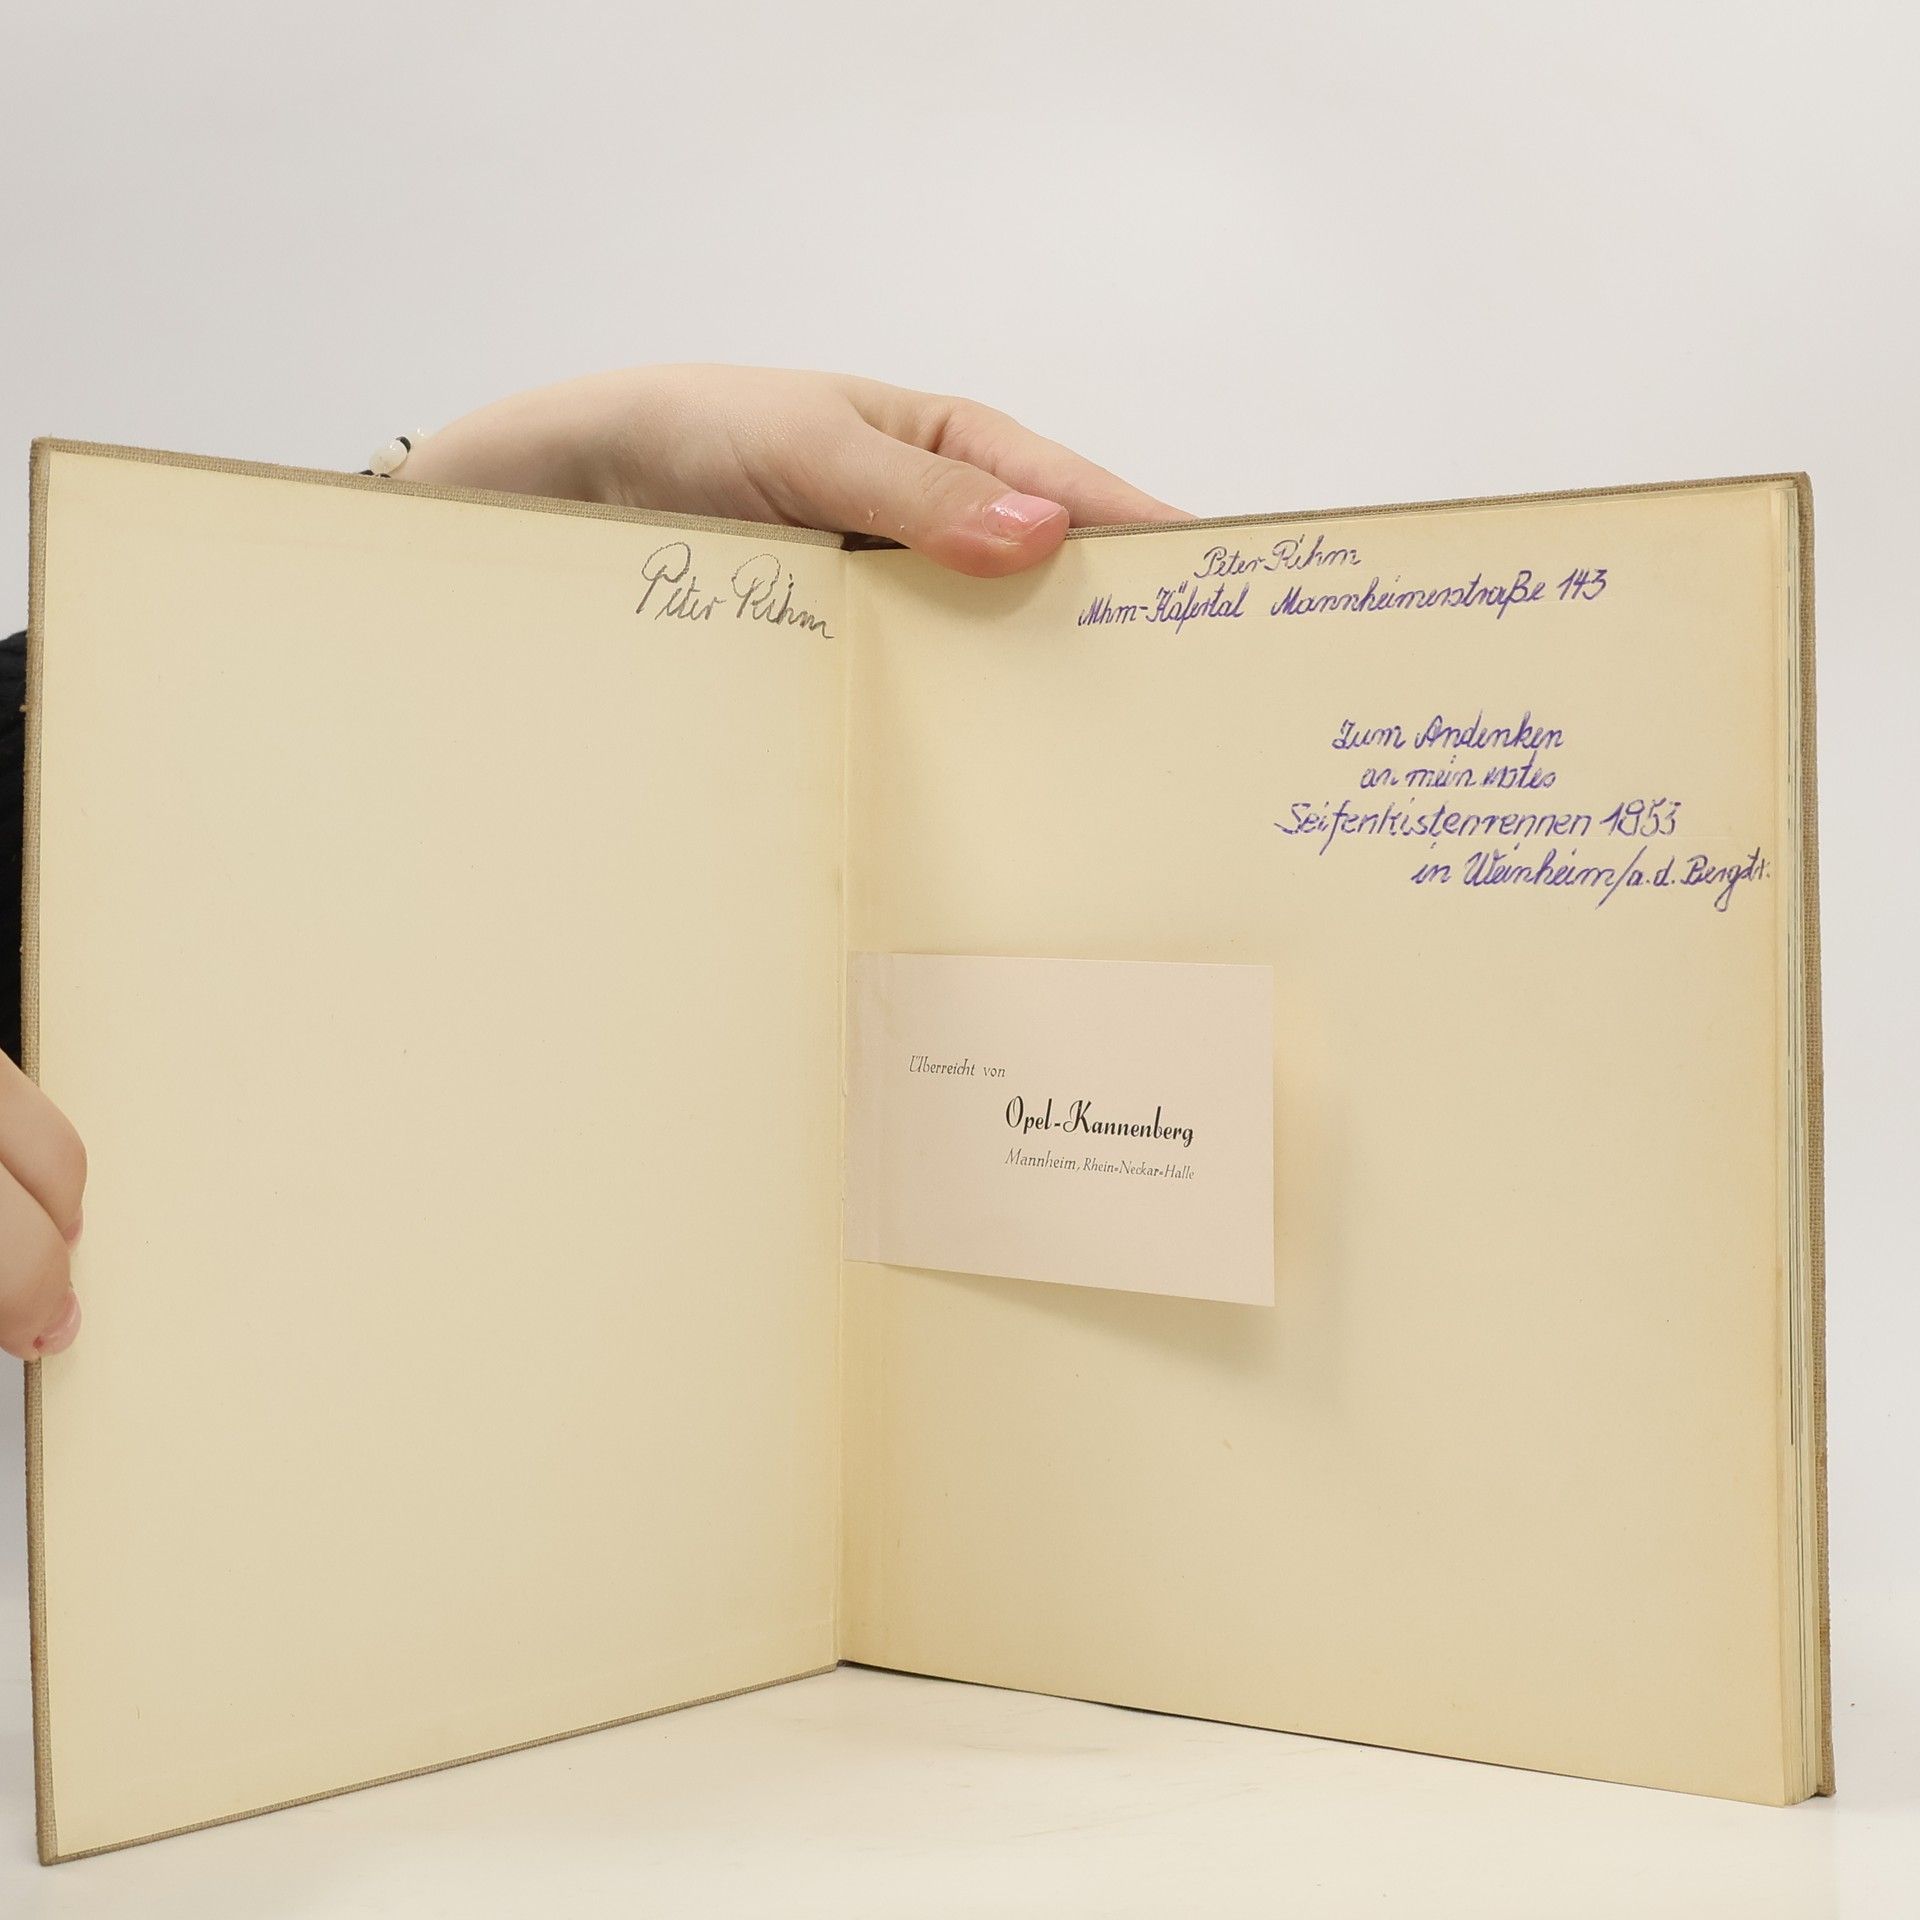 Peter Rihm
Peter Rihm
Mhm-Käfertal Mannheimerstraße 143
Zum Andenken
an mein erstes
Seifenkistenrennen 1953
in Weinheim/a.d. Bergstr.
Überreicht von
Opel-Kannenberg
Mannheim, Rhein-Neckar-Halle